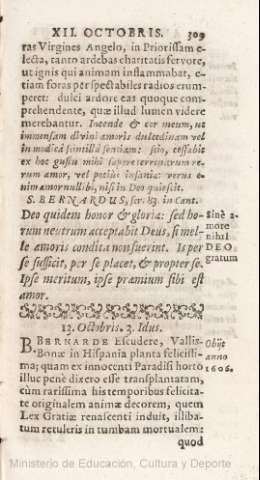 XII. OCTOBRIS. 309
ras Virgines Angelo, in Priorissam e-
lecta, tanto ardebas charitatis fervore,
ut ignis qui animam inflammabat, e-
tiam foras per spectabiles radios erum-
peret: dulci ardore eas quoque com-
prehendente, quæ illud lumen videre
merebantur. Incende & cor meum, ut
immensam divini amoris dulcedinem vel
in modica scintilla sentiam: scio, cessabit
ex hoc gustu mihi sapere terrenarum re-
rum amor, vel potiùs insania: verus e-
nim amor nullibi, nisi in Deo quiescit.
S. BERNARDUS, ser. 83. in Cant.
Deo quidem honor & gloria: sed ho-
rum neutrum acceptabit Deus, si mel-
le amoris condita non fuerint. Is per
se sufficit, per se placet, & propter se.
Ipse meritum, ipse præmium sibi est
amor.
sinè a-
more
nihil
DEO
gratum
13. Octobris. 3. Idus.
B. BERNARDE Escudere, Vallis-
Bonæ in Hispania planta felicissi-
ma; quam ex innocenti Paradisi horto
illuc penè dixero esse transplantatam,
cùm rarissima his temporibus felicita-
te originalem animæ decorem, quem
Lex Gratiæ renascenti induit, illiba-
tum retuleris in tumbam mortualem:
quod
Obijt
anno
1606.
Ministerio de Educación, Cultura y Deporte